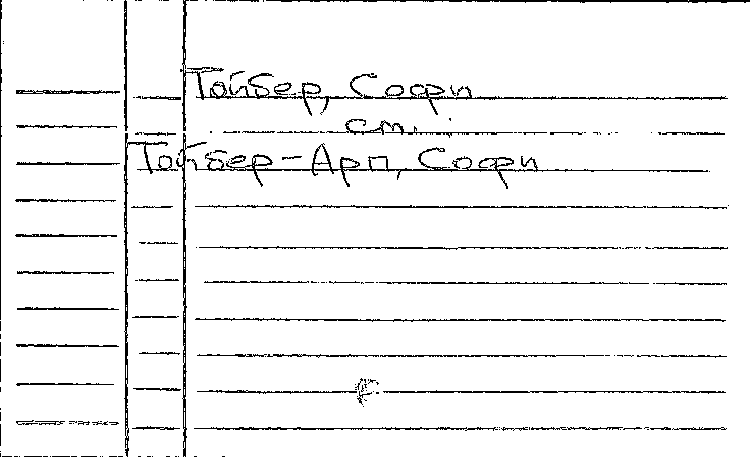 Тойбер, Софи
см.
Тойбер-Арп, Софи